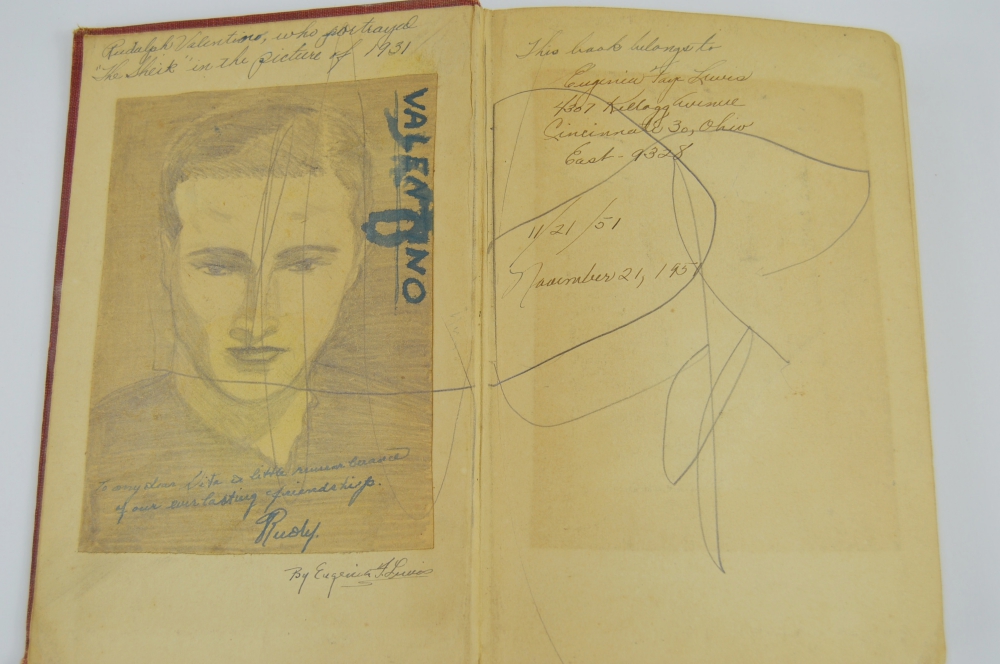 Rudalph Valentino, who portrayed
"The Sheik" in the picture of 1931
VALENTINO
To my dear Vita a little remembrance
of our everlasting friendship.
Rudy.
By Eugenia F. Lewis
This book belongs to
Eugenia Faye Lewis
4307 Kellogg Avenue
Cincinnati 30, Ohio
East - 9328
11/21/51
November 21, 1951